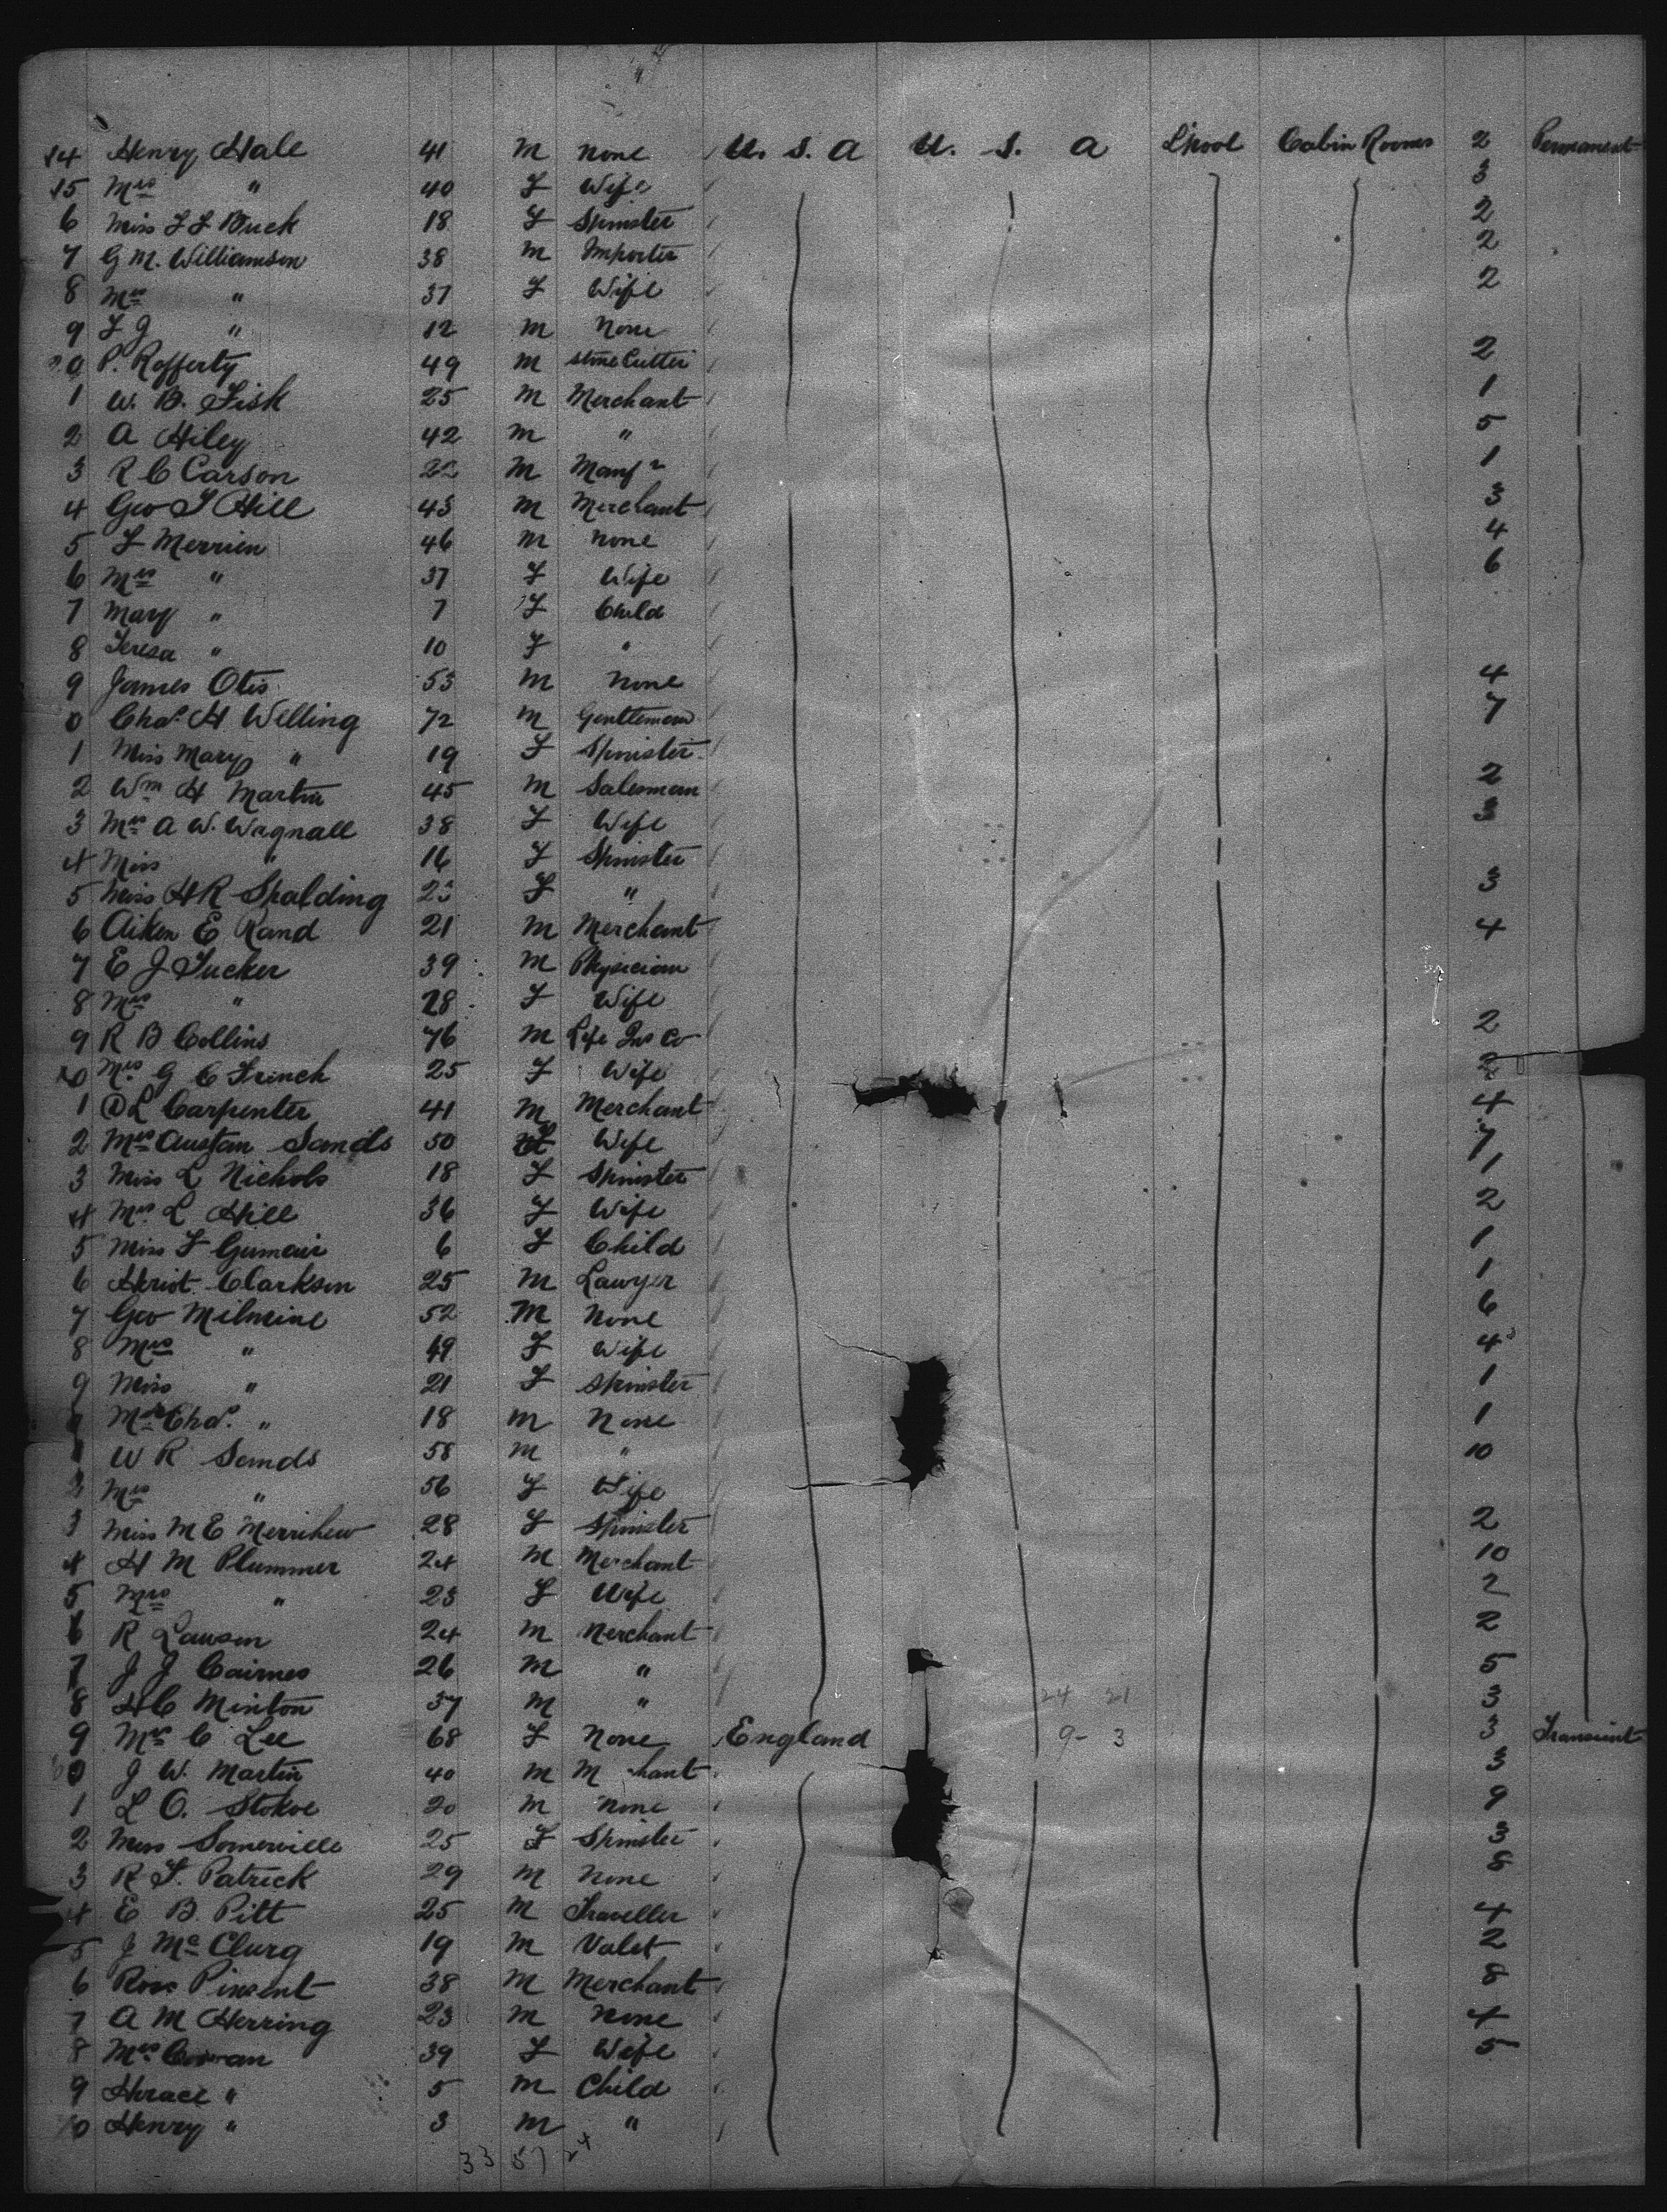 14 Henry Hale 41 M None U. S. A U. S. A L'pool Cabin Rooms 2 Permanent
15 Mrs " 40 F Wife 3
6 Miss F F Buck 18 F Spinster 2
7 G M. Williamson 38 M Importer 2
8 Mrs " 37 F Wife 2
9 F G " 12 M None
20 P. Rafferty 49 M Stone Cutter 2
1 W. B. Fisk 25 M Merchant 1
2 A Hiley 42 M " 5
3 R C Carson 22 M Manfr 1
4 Geo F Hill 43 M Merchant 3
5 F Merrien 46 M None 4
6 Mrs " 37 F Wife 6
7 Mary " 7 F Child
8 Teresa " 10 F "
9 James Otis 53 M None 4
0 Chas. H Welling 72 M Gentleman 7
1 Miss Mary " 19 F Spinster
2 Wm H Martin 45 M Salesman 2
3 Mrs A W. Wagnall 38 F Wife 3
4 Miss " 16 F Spinster
5 Miss H R Spalding 23 F " 3
6 Aiken E Rand 21 M Merchant 4
7 E J Tucker 39 M Physician
8 Mrs " 28 F Wife
9 R B Collins 76 M Life Ins Co 2
40 Mrs G C French 25 F Wife 2
1 D L Carpenter 41 M Merchant 4
2 Mrs Austan Sands 50 F Wife 7
3 Miss L Nichols 18 F Spinster 1
4 Mrs. L Hill 36 F Wife 2
5 Miss F Gumair 6 F Child 1
6 Heriot Clarkson 25 M Lawyer 1
7 Geo Milmine 52 M None 6
8 Mrs " 49 F Wife 4
9 Miss " 21 F Spinster 1
Chas. " 18 M None 1
1 W R Sands 58 M " 10
2 Mrs " 56 F Wife
3 Miss M E Merrihew 28 F Spinster 2
4 H M Plummer 24 M Merchant 10
5 Mrs " 23 F Wife 2
6 R Lawson 24 M Merchant 2
7 J J Cairnes 26 M " 5
8 H C Minton 37 M " 24 21 3
9 Mrs C Lee 68 F None England 9 - 3 3 Transient
60 J W. Martin 40 M M hant 3
1 L O. Stokoe 20 M None 9
2 Miss Somerville 25 F Spinster 3
3 R F. Patrick 29 M None 8
4 E B. Pitt 25 M Traveller 4
5 J Mc Clurg 19 M Valet 2
6 Ross Pinsent 38 M Merchant 8
7 A M Herring 23 M None 4
8 Mrs 39 F Wife 5
9 Horace " 5 M Child
70 Henry " 3 M "
33 57 24